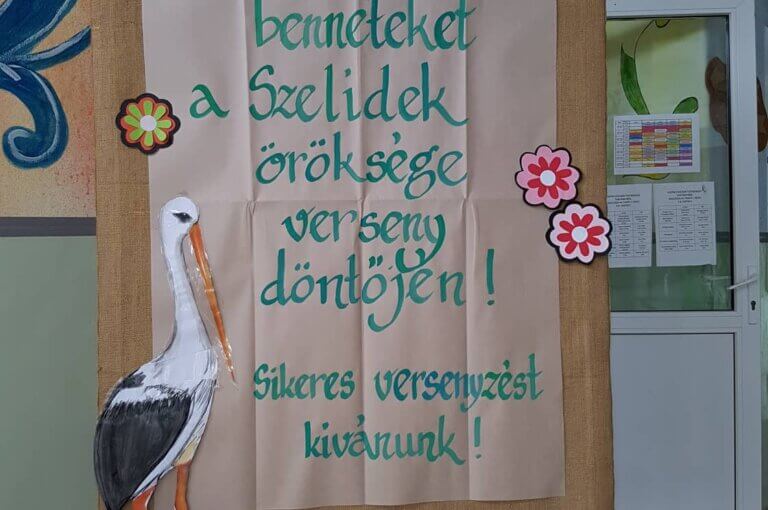 benneteket
a Szelidek
öröksége
verseny
döntőjén!
Sikeres versenyzést
kívánunk!